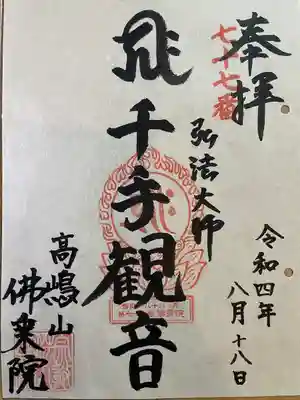 奉拝
七十七番
弘法大師
令和四年
八月十八日
千手観音
高嶋山
佛乗院